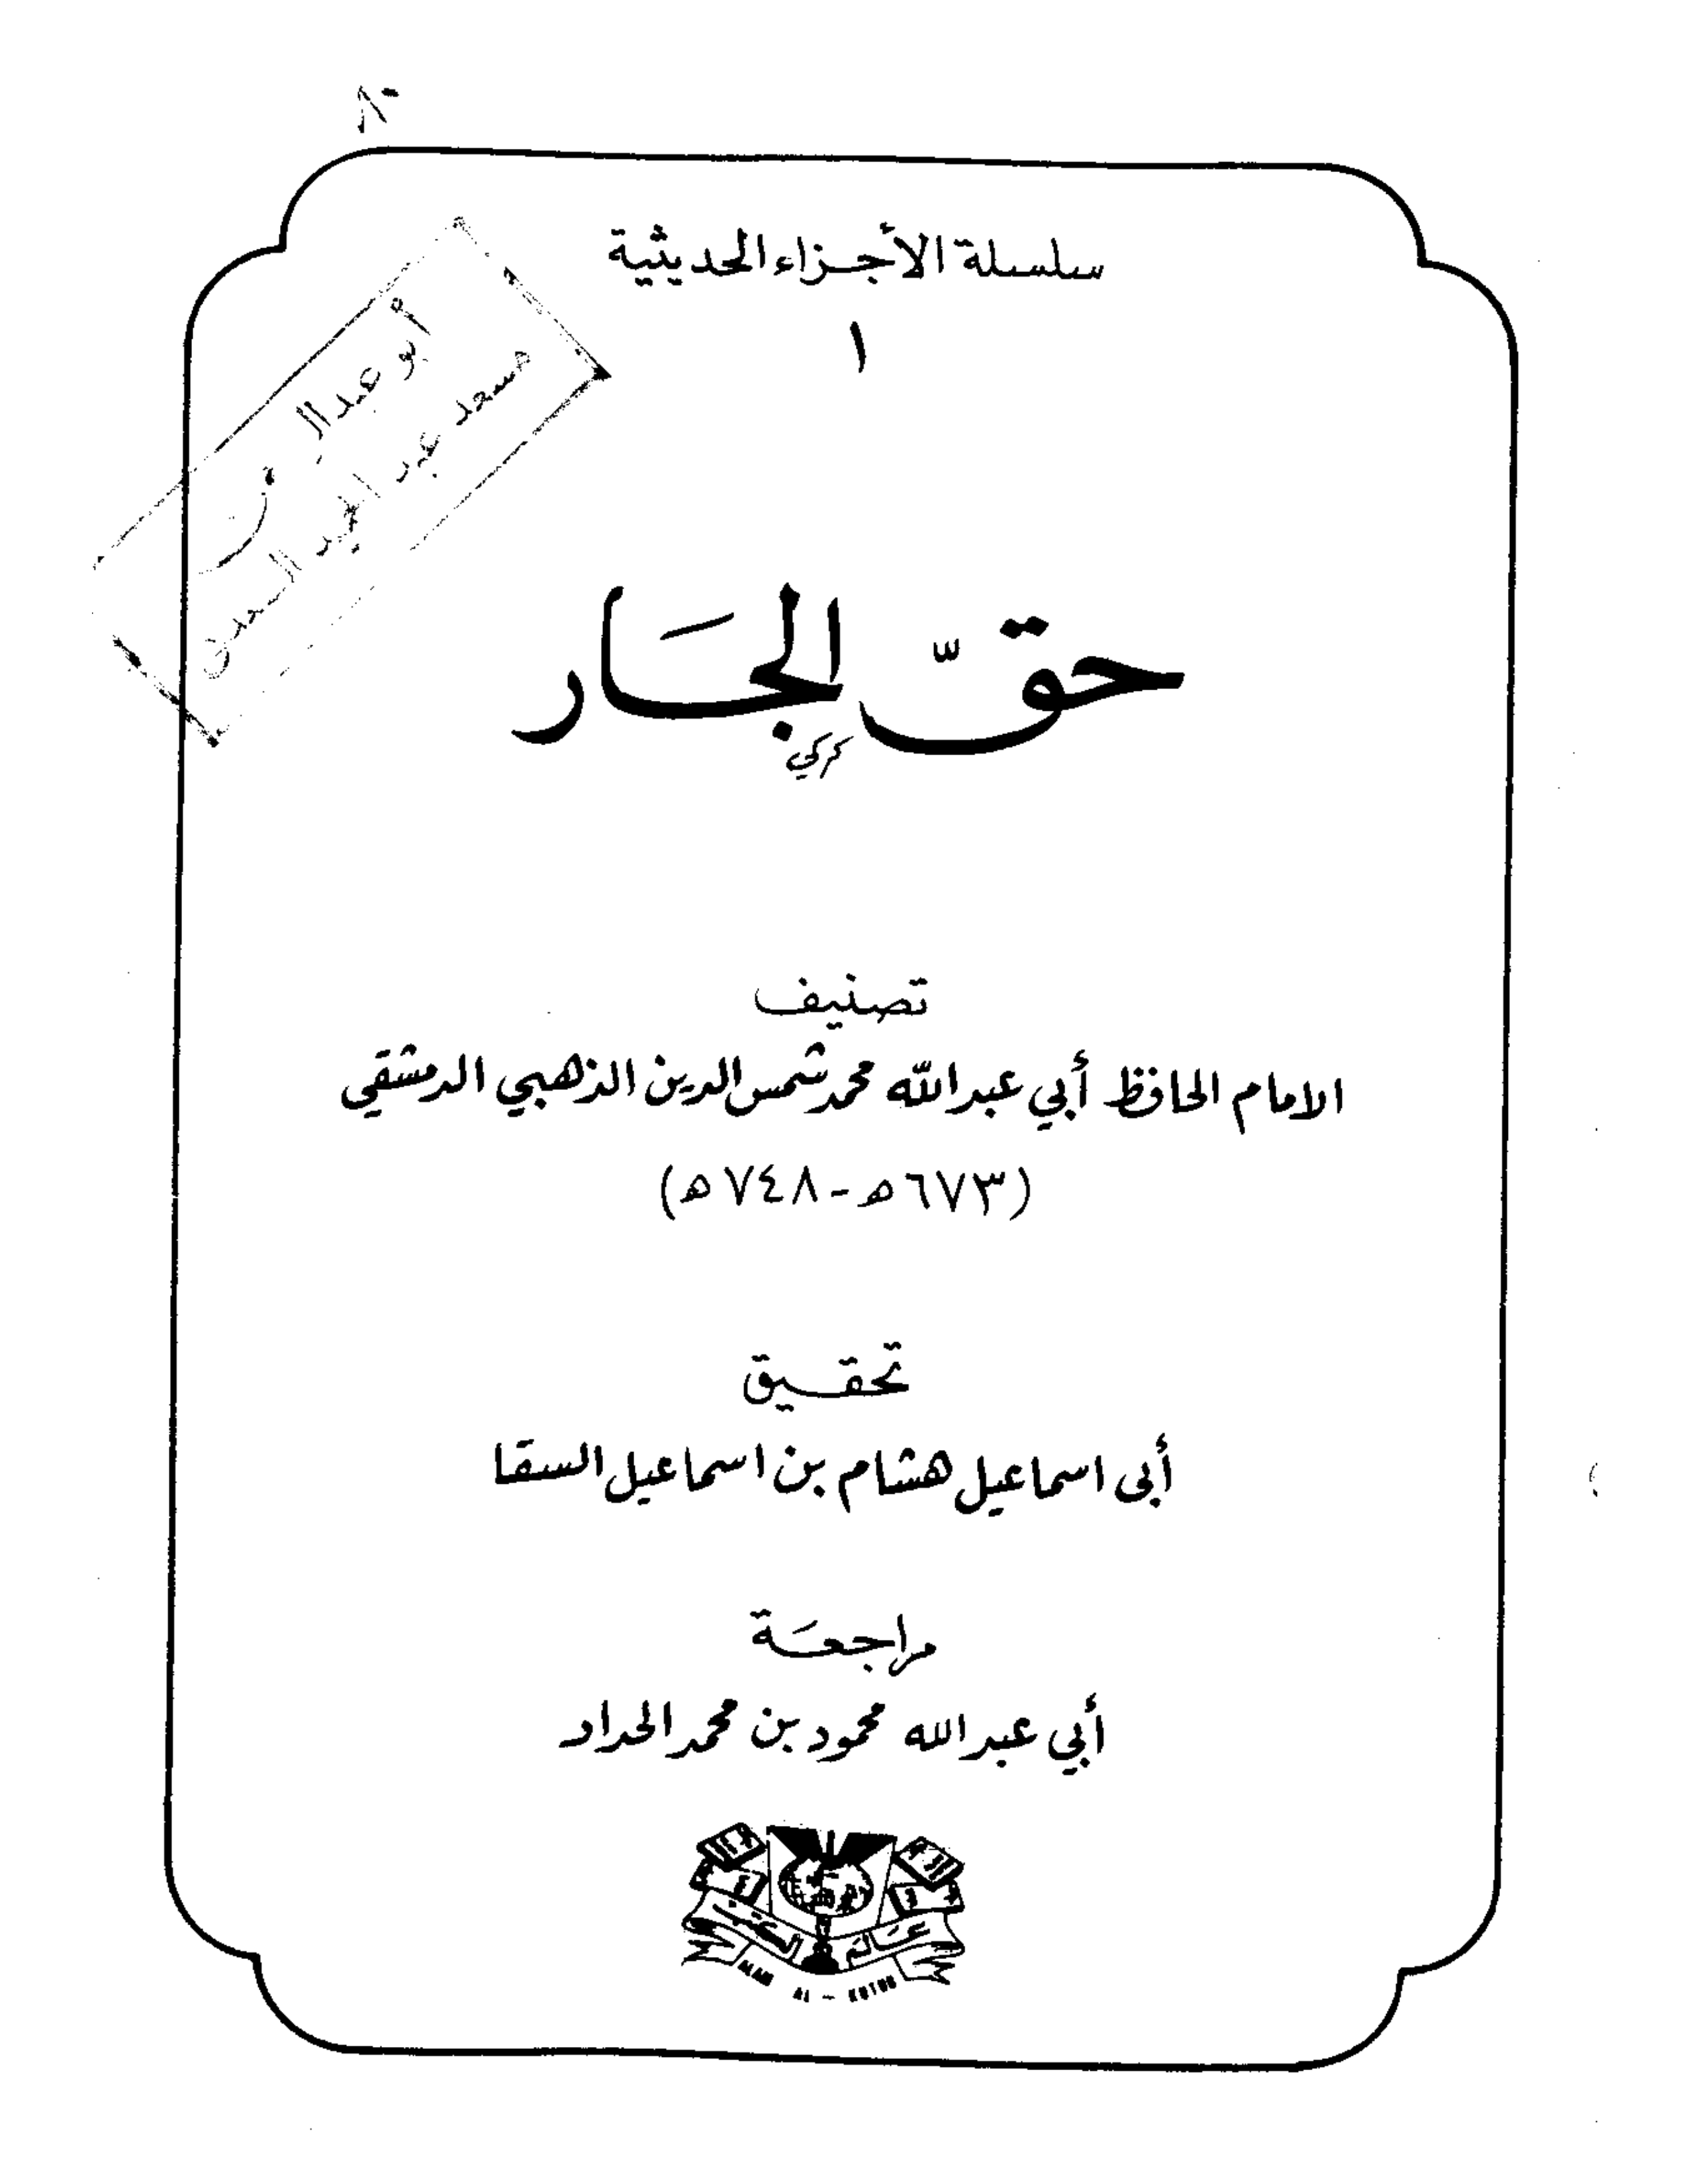 سلسلة الأجزاء الحديثية
١
أبو عبدالر
مسعد عبد الحميد السعدني
حقّ الجَار
كركي
تصنيف
الامام الحافظ أبي عبدالله محمد شمس الدين الذهبي الدمشقي
(٦٧٣ه - ٧٤٨ه)
تحقيق
أبى اسماعيل هشام بن اسماعيل السقا
مراجعَة
أبي عبدالله محمود بن محمد الحداد
عالم الكتب
ALAM AL - KUTUB